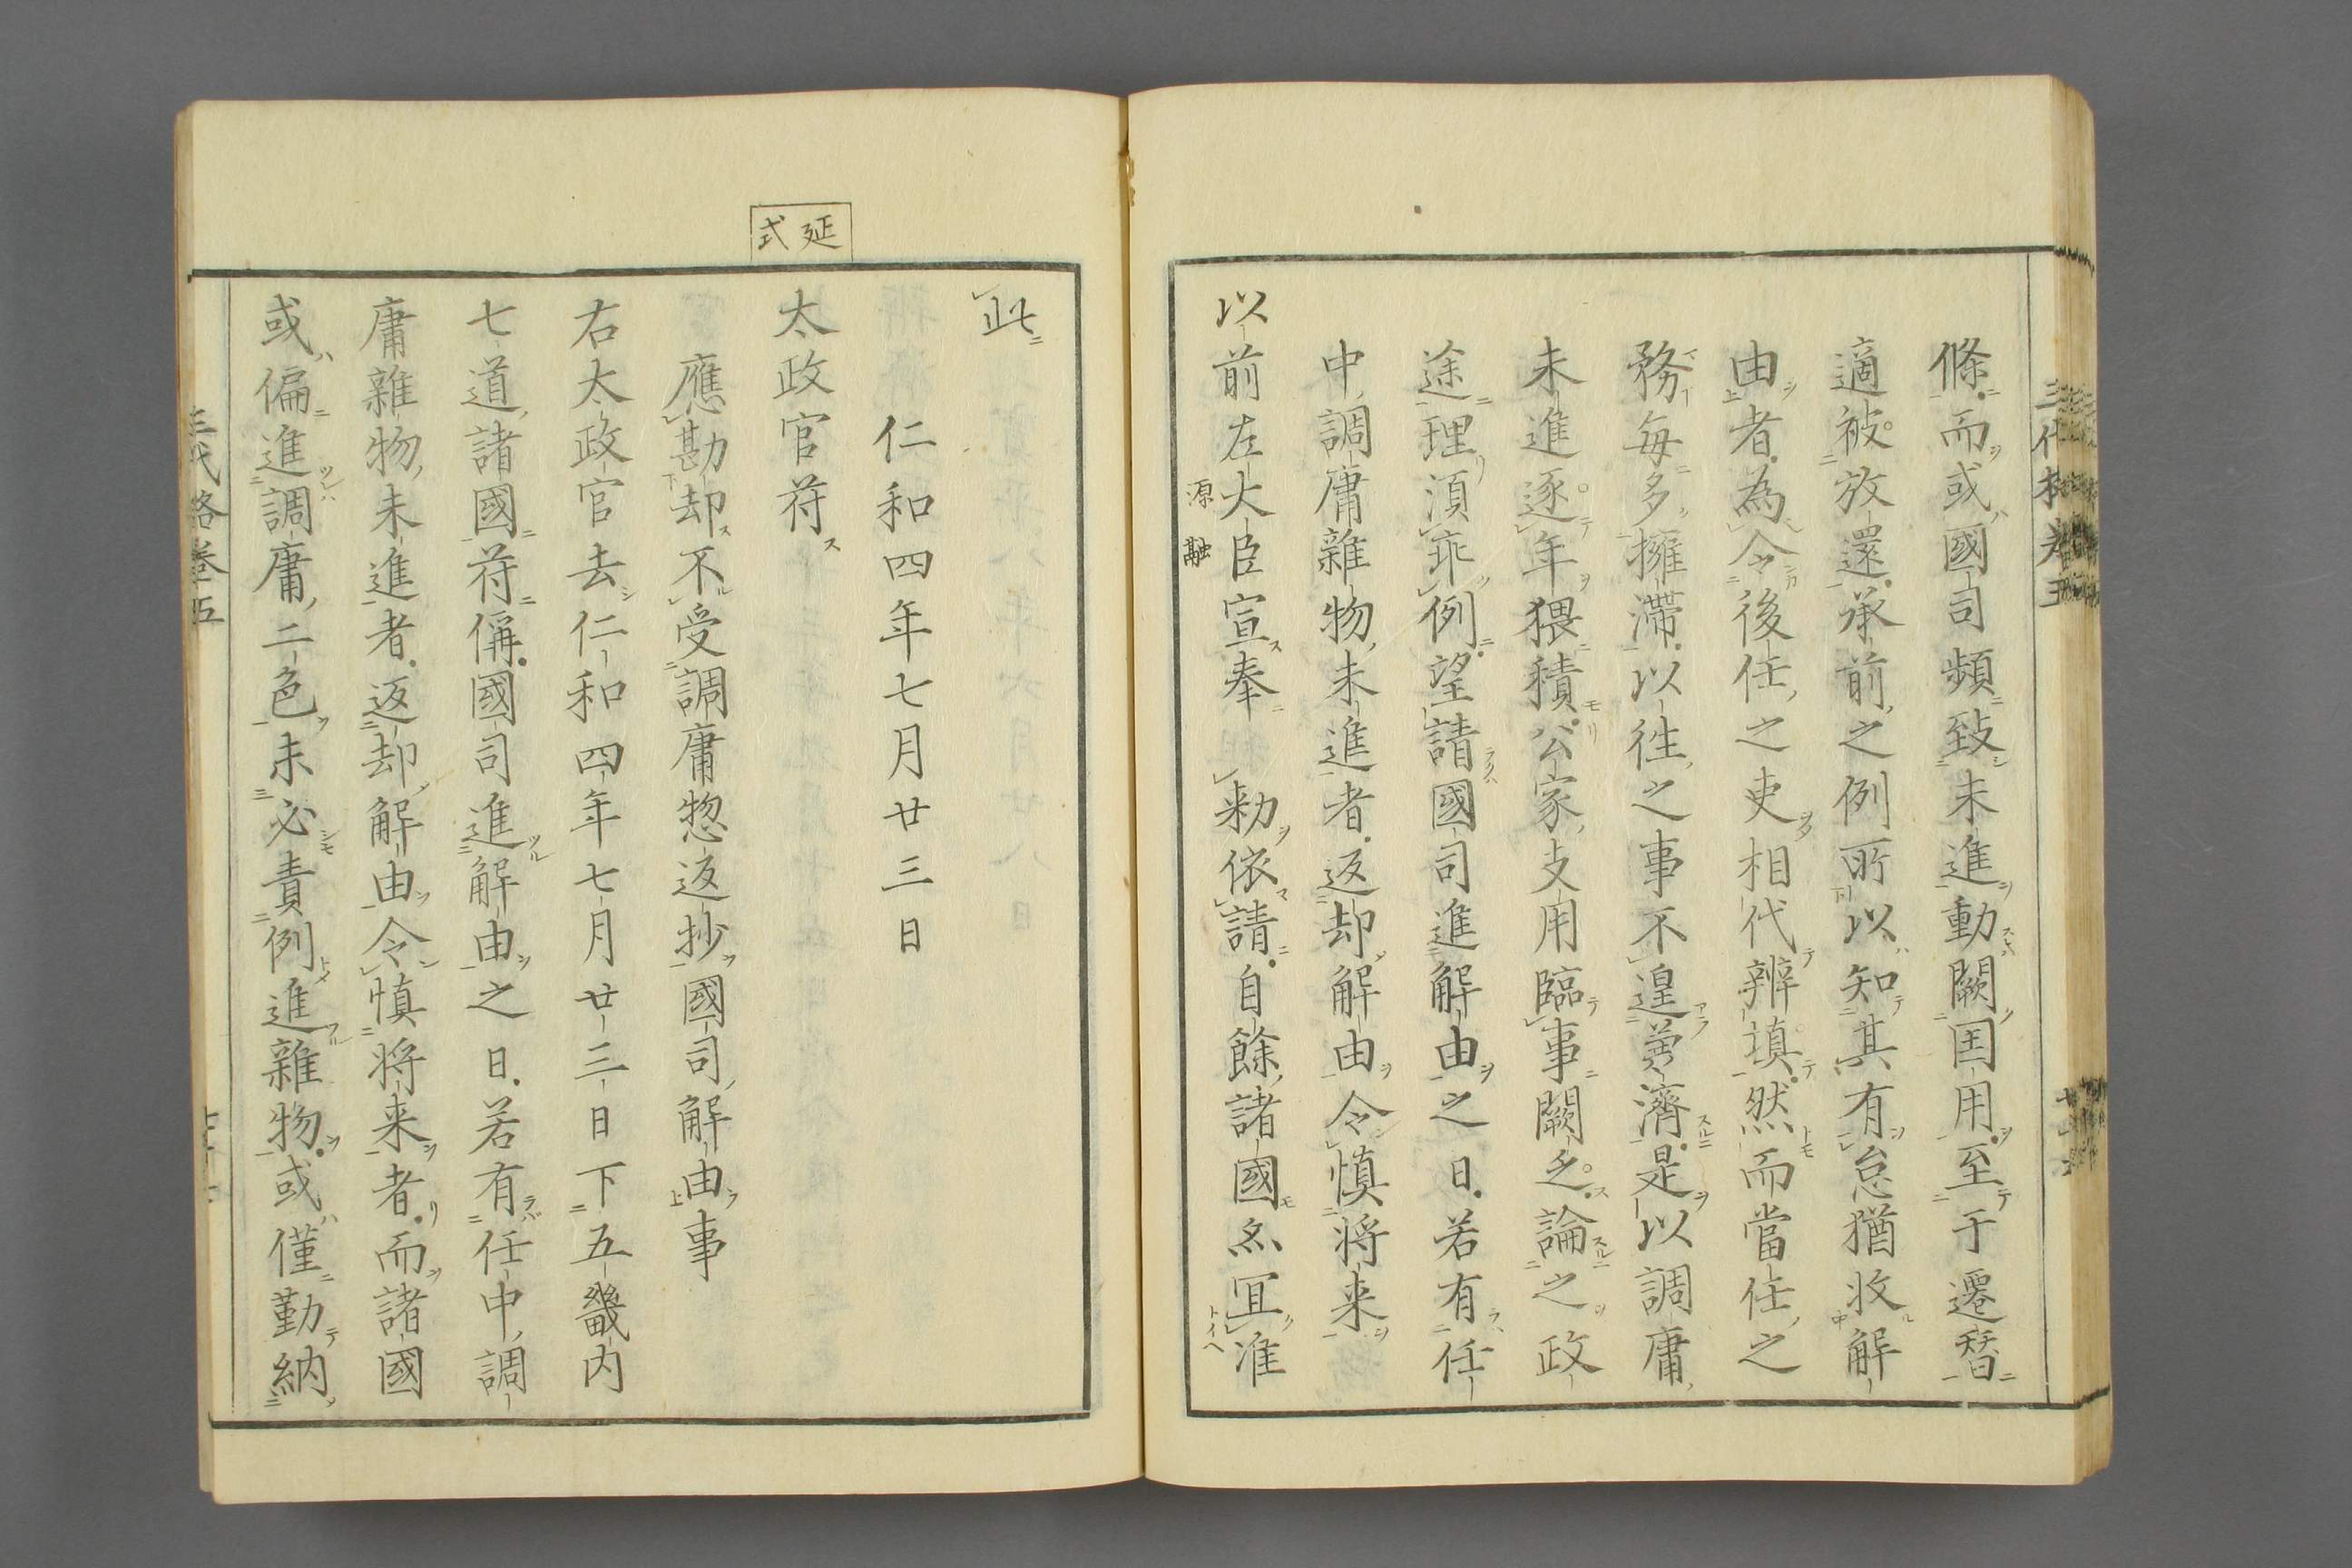 條而或國司頻致未進動闕国用至于遷替
適被放還承前之例所以知其有怠猶收解
由者為令後任之吏相代辨填然而當任之
務每多擁滞以徃之事不遑兼濟是以調庸
未進逐年猥積公家支用臨事闕乏論之政
途理湏乖例望請國司進解由之日若有任
中調庸雜物未進者返却解由令慎将来
以前左大臣宣奉 勑依請自餘諸國亦冝准
源融
此
仁和四年七月廿三日
延式
太政官符
應勘却不受調庸惣返抄國司解由事
右太政官去仁和四年七月廿三日下五畿内
七道諸國符偁國司進解由之日若有任中調
庸雜物未進者返却解由令慎将来者而諸國
或偏進調庸二色未必責例進雜物或僅勤納
三代格卷五